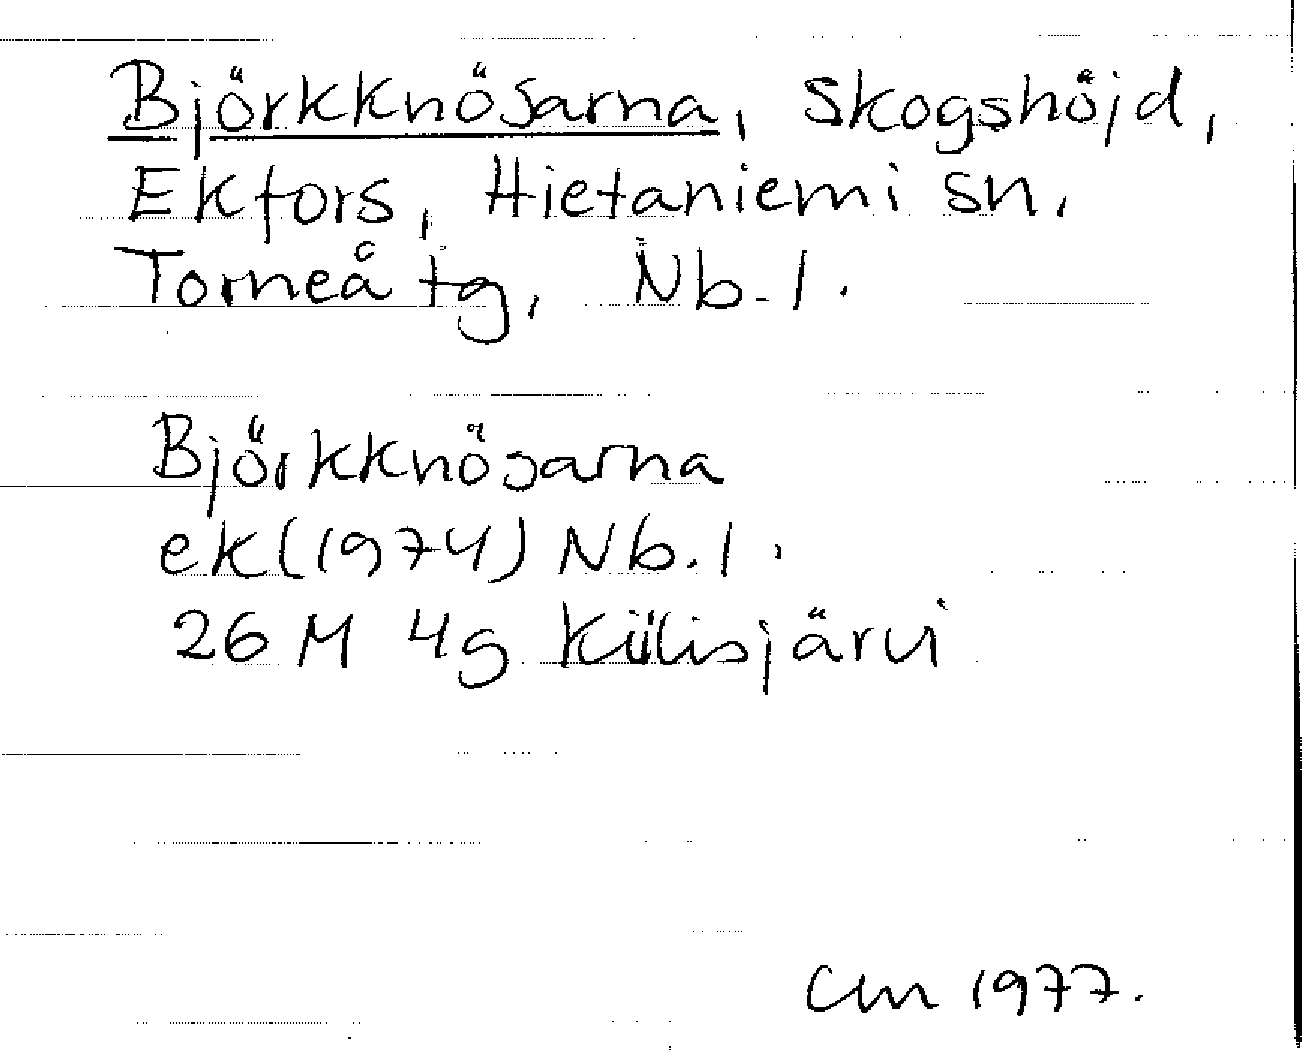 Björkknösarna, Skogshöjd,
Ekfors, Hietaniemi sn,
Torneå tg, Nb. l.
Björkknösarna
ek (1974) Nb. l.
26 M 4g Kiilisjärvi
CM 1977.